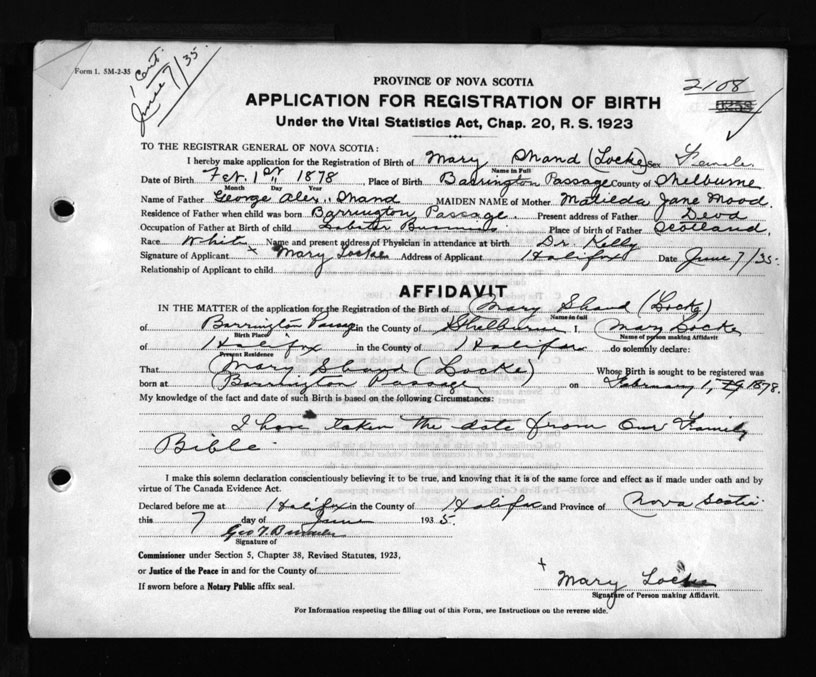 Form 1. 5M-2-35
Cert.
June 7/35.
PROVINCE OF NOVA SCOTIA
2108
APPLICATION FOR REGISTRATION OF BIRTH
Under the Vital Statistics Act, Chap. 20, R. S. 1923
TO THE REGISTRAR GENERAL OF NOVA SCOTIA:
I hereby make application for the Registration of Birth of Mary Shand (Locke) Sex Female
Name in Full
Date of Birth Feb. 1st 1878, Place of Birth Barrington Passage County of Shelburne
Month Day Year
Name of Father George Alex. Shand MAIDEN NAME of Mother Matilda Jane Mood.
Residence of Father when child was born Barrington Passage. Present address of Father Dead
Occupation of Father at Birth of child Lobster Business Place of birth of Father Scotland.
Race White Name and present address of Physician in attendance at birth Dr. Kelly
Signature of Applicant x Mary Locke Address of Applicant Halifax Date June 7/35.
Relationship of Applicant to child
AFFIDAVIT
IN THE MATTER of the application for the Registration of the Birth of Mary Shand (Locke)
Name in full
of Barrington Passage in the County of Shelburne I, Mary Locke
Birth Place Name of person making Affidavit
of Halifax in the County of Halifax do solemnly declare:
Present Residence
That Mary Shand (Locke) Whose Birth is sought to be registered was
born at Barrington Passage on February 1, 1878.
My knowledge of the fact and date of such Birth is based on the following Circumstances:
I have taken the date from our Family
Bible.
I make this solemn declaration conscientiously believing it to be true, and knowing that it is of the same force and effect as if made under oath and by
virtue of The Canada Evidence Act.
Declared before me at Halifax in the County of Halifax and Province of Nova Scotia
this 7 day of June 1935.
Geo. T.
Signature of
Commissioner under Section 5, Chapter 38, Revised Statutes, 1923,
or Justice of the Peace in and for the County of
If sworn before a Notary Public affix seal.
x Mary Locke
Signature of Person making Affidavit.
For Information respecting the filling out of this Form, see Instructions on the reverse side.